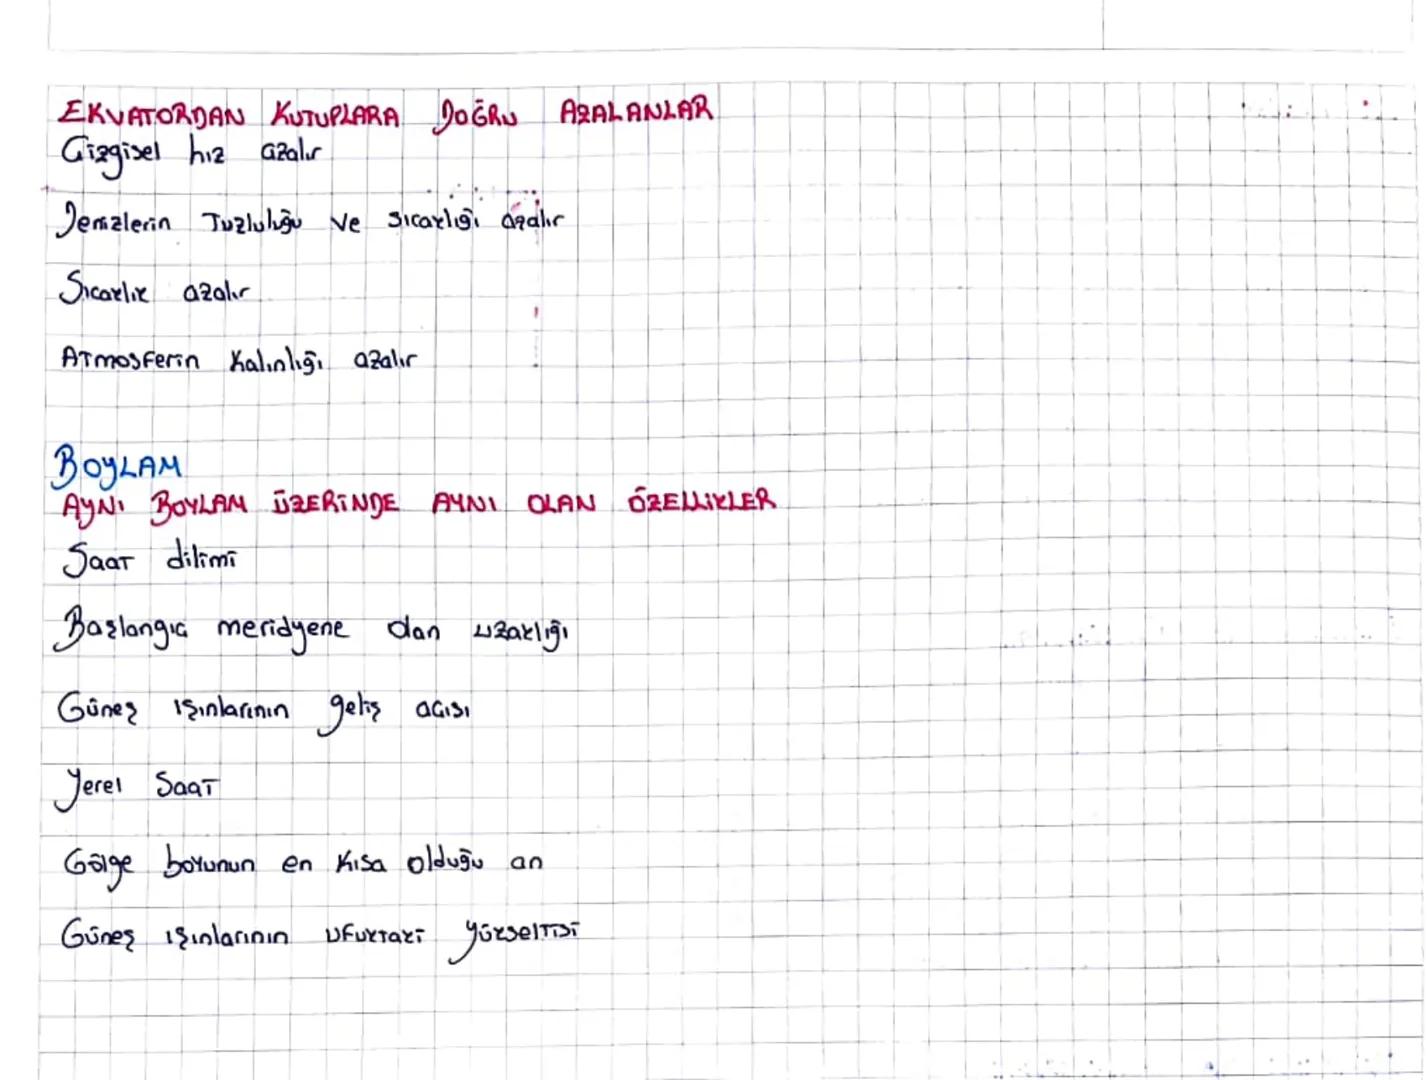 EKVATORDAN KUTUPLARA DOĞRU AZALANLAR
Çizgisel hız azalır
Denizlerin Tuzluluğu ve sıcaklığı azalır
Sıcaklık azalır
Atmosferin Kalınlığı azalır
BOYLAM
AYNI BOYLAM ÜZERİNDE AYNI OLAN ÖZELLİKLER
Saat dilimi
Başlangıç meridyene olan uzaklığı
Güneş ışınlarının geliş açısı
Yerel Saat
Gölge boyunun en kısa olduğu an
Güneş ışınlarının ufuktaki yükseltisi